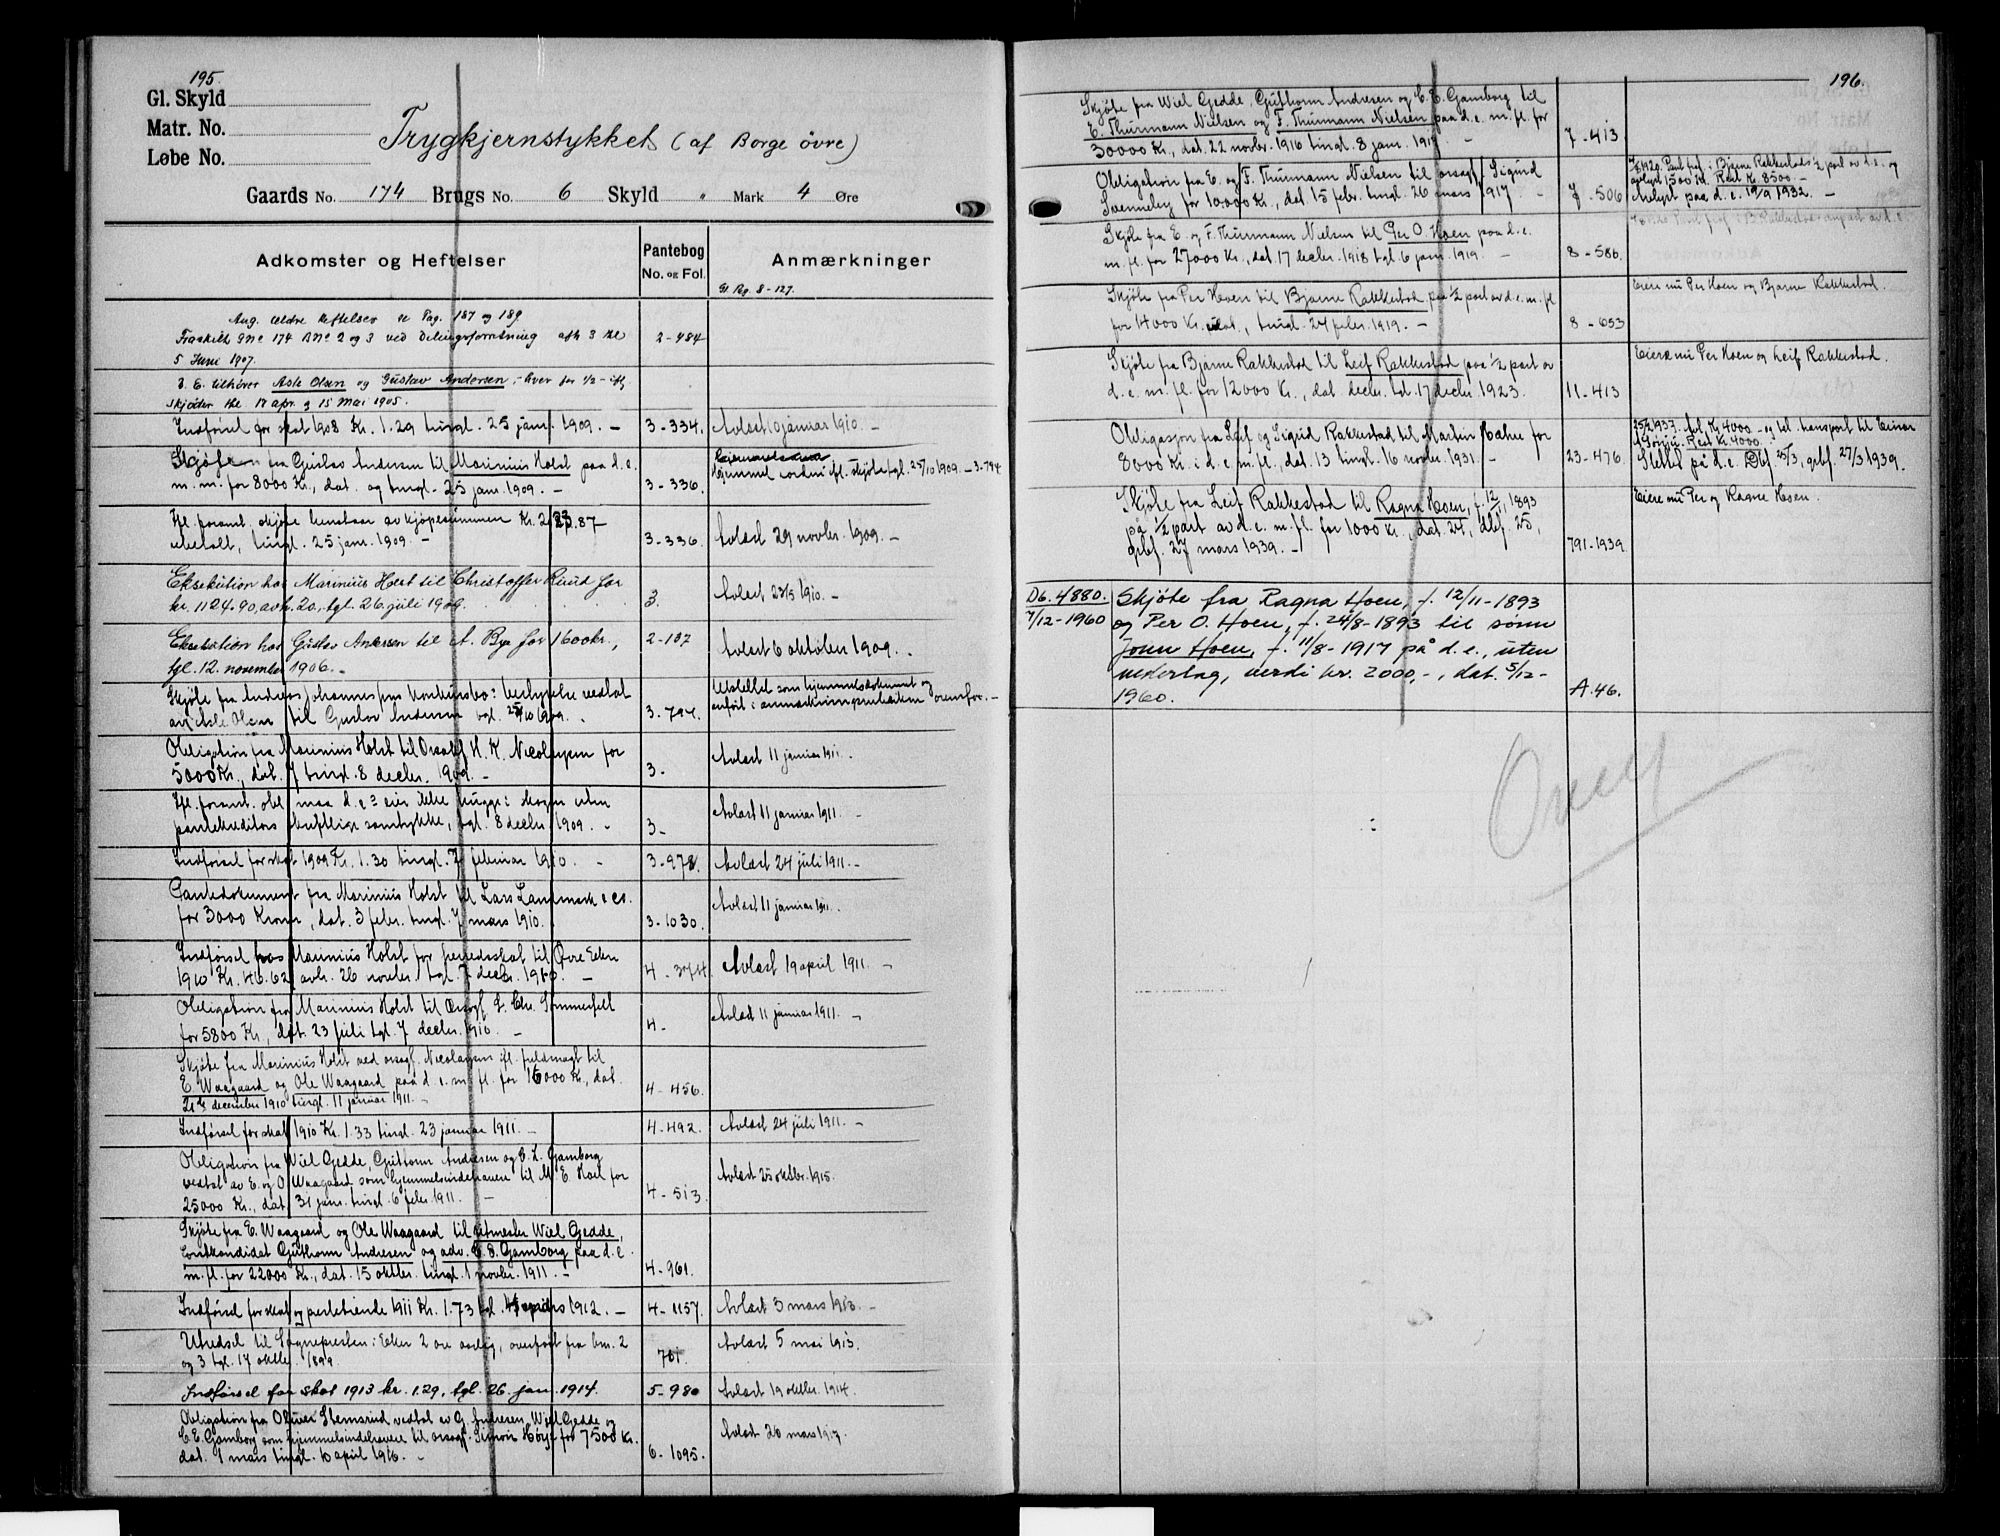 195.
Gl. Skyld
Matr. No.
Løbe No.
Trygkjernstykket (af Borge övre)
Gaards No. 174 Brugs No. 6 Skyld " Mark 4 Øre
Adkomster og Heftelser
Pantebog
No. og Fol.
Anmærkninger
Gl Rg. 8-127.
Ang. ældre Heftelser se Pag. 187 og 189
Fraskilt Gno 174 Bno 2 og 3 ved Delingsforretning afh 3 thl
5 Juni 1907.
2-484
D. E. tilhører Asle Olsen og Gustav Andersen, hver for 1/2 ifg.
skjøder thl 17 apr. og 15 Mai 1905.
Indførsel for skat 1908 Kr. 1.29 tingl. 25 jan. 1909. -
3-334.
Avlæst 10 januar 1910. -
Skjøte fra Gustav Andersen til Marinius Holst paa d.e.
m.m. for 8000 Kr., dat. og tingl. 25 jan. 1909. -
3-336.
Hjemmel i orden ifl. skjøte tgl. 25/10 1909 - 3-794
Ifl. foramt. skjøte henstaar av kjøpesummen Kr. 87
ubetalt, tingl. 25 jan. 1909. -
3-336.
Avlæst 29 novbr. 1909. -
Eksekution hos Marinius Holst til Christoffer Ruud for
kr. 1124.90, avh. 20, tgl. 26. juli 1909.
3.
Avlæst 23/5 1910. -
Eksekution hos Gustav Andersen til A. Bye for 1600 kr.,
tgl. 12. november 1906. -
2-137
Avlæst 6 oktober 1909. .
Skjøte fra Andreas Johannessens konkursbo: bestyrelse vedtat
av Asle Olsen til Gustav Andersen tgl. 25/10 1909.
3-794.
Utslettet som hjemmelsdokument og
anført i anmærkningsrubrikken ovenfor. -
Obligation fra Marinius Holst til Orsakf. H. K. Nicolaysen for
5000 Kr., dat. 7 tingl. 8 decbr. 1909. -
3.
Avlæst 11 januar 1911.
Ifl. foramt. obl. maa d.e.s eier ikke hugge i skogen uten
pantekreditors skriftlige samtykke, tgl. 8 decbr. 1909. .
3-
Avlæst 11 januar 1911. -
Indførsel for skat 1909 Kr. 1.30 tingl. 7 februar 1910. -
3-978.
Avlæst 24 juli 1911. -
Pantedokument fra Marinius Holst til Lars Landmark & co.
for 3000 Kroner, dat. 3 febr. tingl. 7 mars 1910.
3-1030.
Avlæst 11 januar 1911.
Indførsel hos Marinius Holst for herredsskat til Øvre Eker
1910 Kr. 46.62, avh. 26 novbr. tgl. 7 decbr. 1910. -
4-374.
Avlæst 19 april 1911. -
Obligation fra Marinius Holst til Orsagf. L. Chr. Sommerfelt
for 5800 Kr., dat. 23 juli tgl. 7 decbr. 1910. -
4-
Avlæst 11 januar 1911. -
Skjøte fra Marinius Holst ved orsagf. Nicolaysen ifl. fuldmagt til
E. Waagaard og Ole Waagaard paa d.e.m.fl. for 16000 Kr., dat.
21de december 1910 tingl. 11 januar 1911. -
4-456.
Indførsel for skat 1910 Kr. 1.33 tingl. 23 januar 1911. -
4-492.
Avlæst 24 juli 1911. -
Obligation fra Wiel Gedde, Guthorm Andresen og C. E. Gamborg
vedtat av E. og O. Waagaard som hjemmelsindehavere til M. E. Kael for
25000 Kr., dat. 31 jan. tingl. 6 febr. 1911. -
4-513.
Avlæst 25 oktbr. 1915.
Skjøte fra E. Waagaard og Ole Waagaard til Wiel Gedde,
forstkandidat Guthorm Andresen og adv. C. E. Gamborg paa d.e.
m.fl. for 22000 Kr., dat. 15 oktbr. tingl. 1 novbr. 1911. -
4-961.
Indførsel for skat og pertetiende 1911 Kr. 1.73 tgl. 1912. -
4-1157.
Avlæst 3 mars 1913. -
Utredsel til Sognepresten i Eker 2 øre aarlig, overført fra bn. 2
og 3 tgl. 17 oktbr. 1899.
701.
Avlæst 5 mai 1913.
Indførsel for skat 1913 kr. 1.29, tgl. 26 jan. 1914.
5-980
Avlæst 19 oktbr. 1914.
Obligation fra Oliver Stemsrud vedtat av G. Andresen, Wiel Gedde og
C. E. Gamborg som hjemmelsindehavere til orsagf. Simon Høye for 7500 Kr.
dat. 9 mars tingl. 10 april 1916. -
6-1095.
Avlæst 26 mars 1917.
196.
Skjøte fra Wiel Gedde, Guthorm Andresen og C. E. Gamborg til
E. Thurmann Nielsen og F. Thurmann Nielsen paa d.e.m.fl. for
30000 Kr., dat. 22 novbr. 1916 tingl. 8 jan. 1917 -
7-413
Obligation fra E. og F. Thurmann Nielsen til orsagf. Sigurd
Svenneby for 10000 Kr., dat. 15 febr. tingl. 26 mars 1917. -
7-506
1920. Pant fraf. i Bjarne Rakkestads 1/2 part av d.e. og
avlyst 1500 Kr. Rest Kr. 8500. -
Avlyst paa d.e. 19/9 1932. -
Skjøte fra E. og F. Thurmann Nielsen til Per O. Hoen paa d.e.
m.fl. for 27000 Kr., dat. 17 decbr. 1918 tgl. 6 jan. 1919. -
8-586.
Skjøte fra Per Hoen til Bjarne Rakkestad paa 1/2 part av d.e.m.fl
for 14000 Kr. udat., tingl. 24 febr. 1919. -
8-653
Eiere nu Per Hoen og Bjarne Rakkestad.
Skjøte fra Bjarne Rakkestad til Leif Rakkestad paa 1/2 part av
d.e.m.fl. for 12000 Kr., dat. decbr. td. 17 decbr. 1923.
11-413
Eiere nu Per Hoen og Leif Rakkestad.
Obligasjon fra Leif og Sigrid Rakkestad til Martin Bakke for
8000 Kr. i d.e.m.fl., dat. 13 tingl. 16 novbr. 1931. -
23-476.
1937. Avl. Kr 4000 - og tgl. transport til Einar
Rest Kr. 4000.
Slettet på d.e. Dbf. 25/3, grbf. 27/3 1939.
Skjøte fra Leif Rakkestad til Ragna Hoen, f. 12/11, 1893
på 1/2 part av d.e.m.fl. for 1000 Kr., dat. 24, dbf. 25,
grbf. 27 mars 1939. -
791-1939.
Eiere nu Per og Ragna Hoen.
Db. 4880.
7/12-1960
Skjøte fra Ragna Hoen, f. 12/11-1893
og Per O. Hoen, f. 24/8-1893 til sønn
John Hoen, f. 11/8-1917 på d.e., uten
vederlag, verdi kr. 2000,-, dat. 5/12-
1960.
A.46.